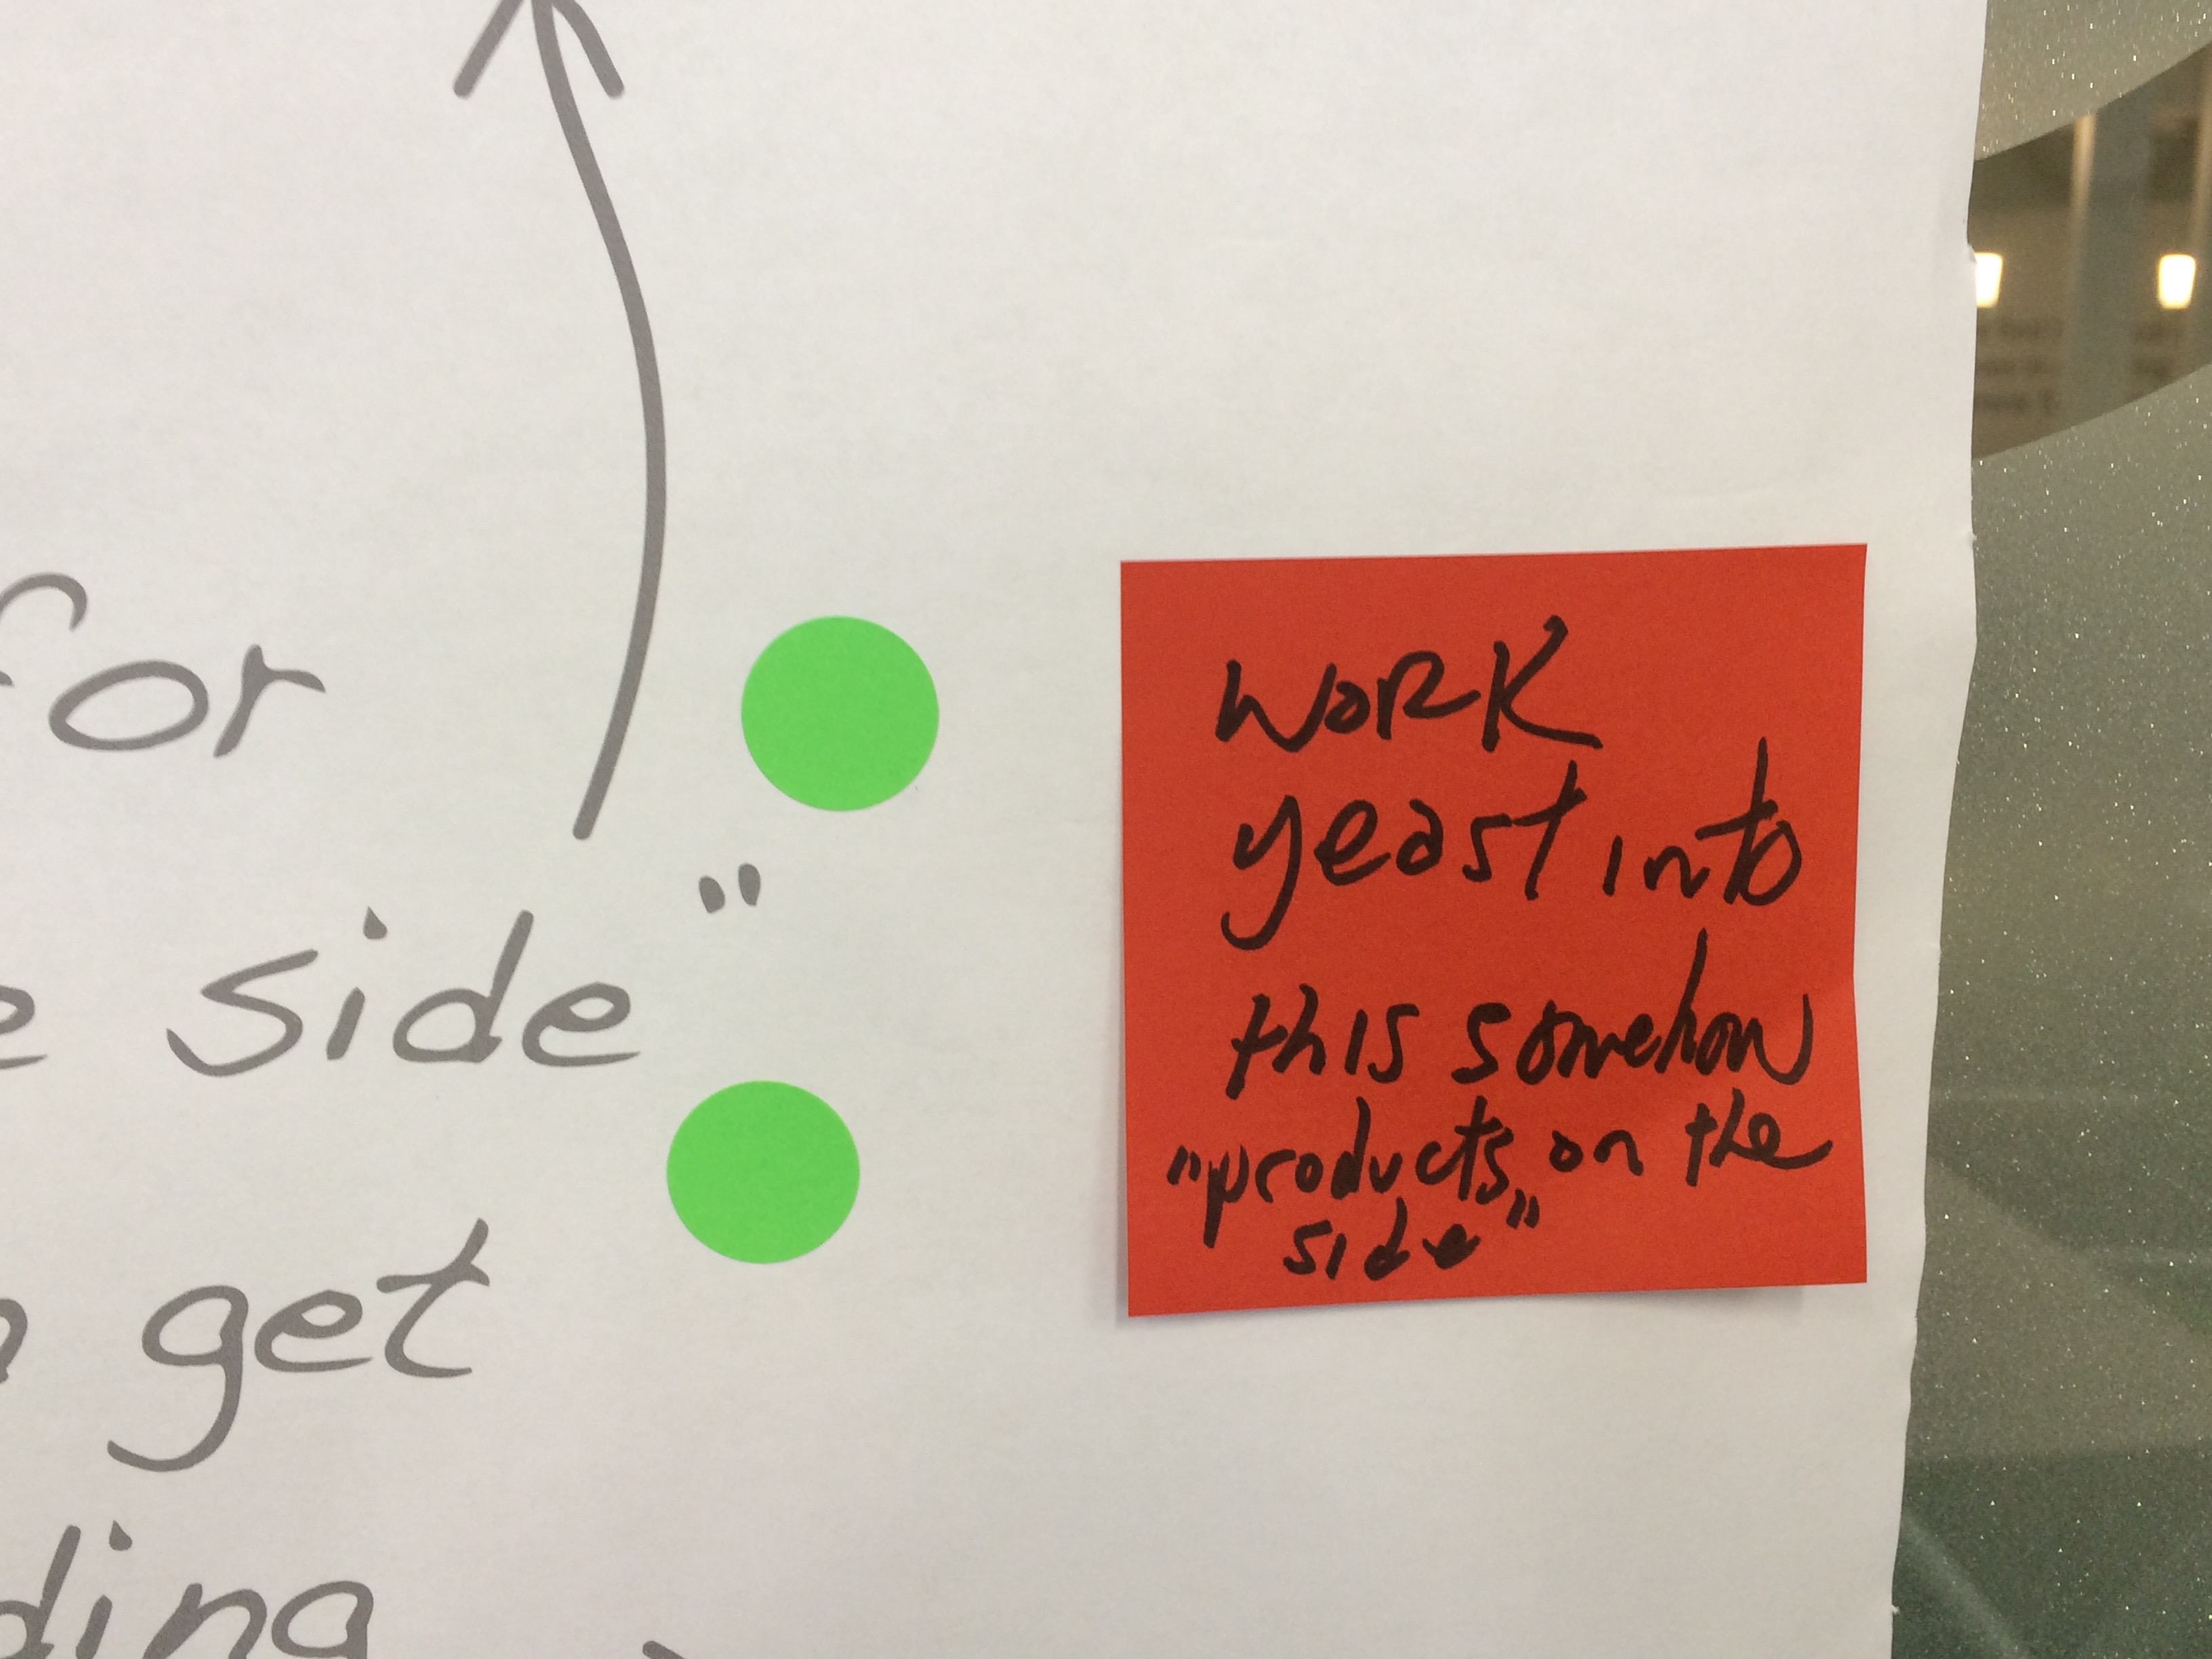 for
side"
get
ding
WORK
yeast into
this somehow
"products" on the
side"